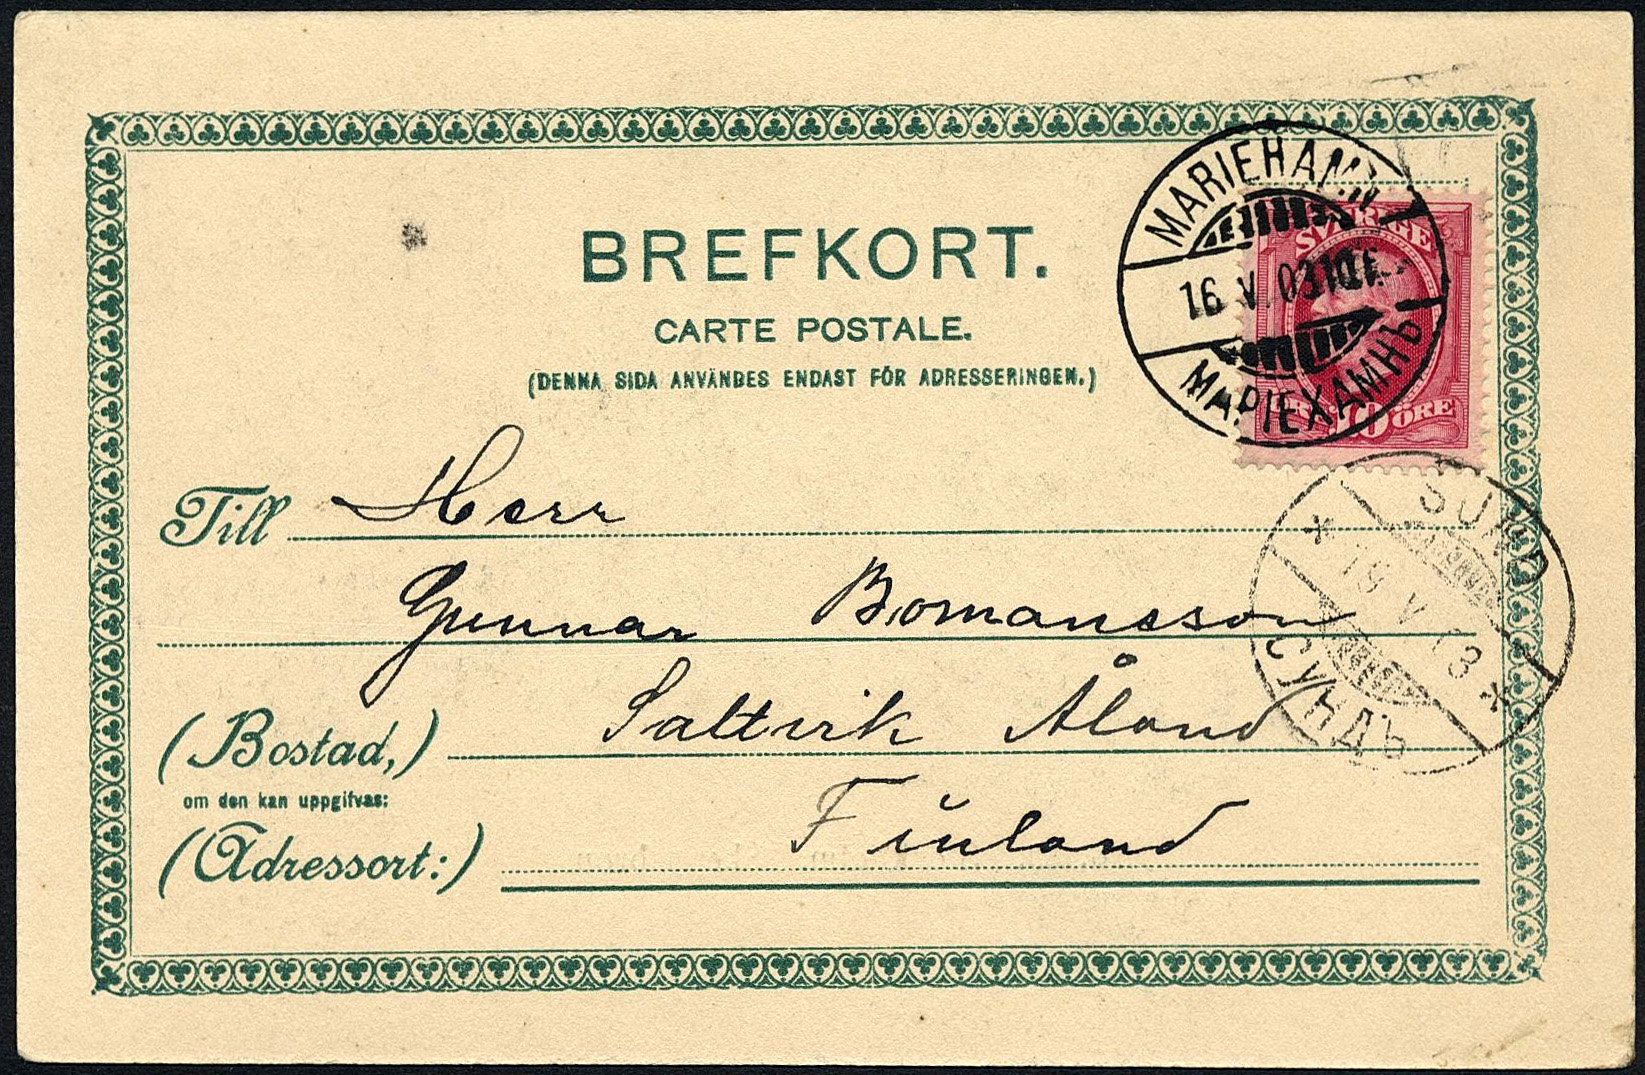 BREFKORT.
CARTE POSTALE.
(DENNA SIDA ANVÄNDES ENDAST FÖR ADRESSERINGEN.)
MARIEHAMN
16.V.03
МАРІЕХАМНЪ
SVERIGE
10 ÖRE
Till Herr
Gunnar Bomansson
SUND
СУНДЪ
(Bostad,) Saltvik Åland
om den kan uppgifvas:
(Adressort:) Finland